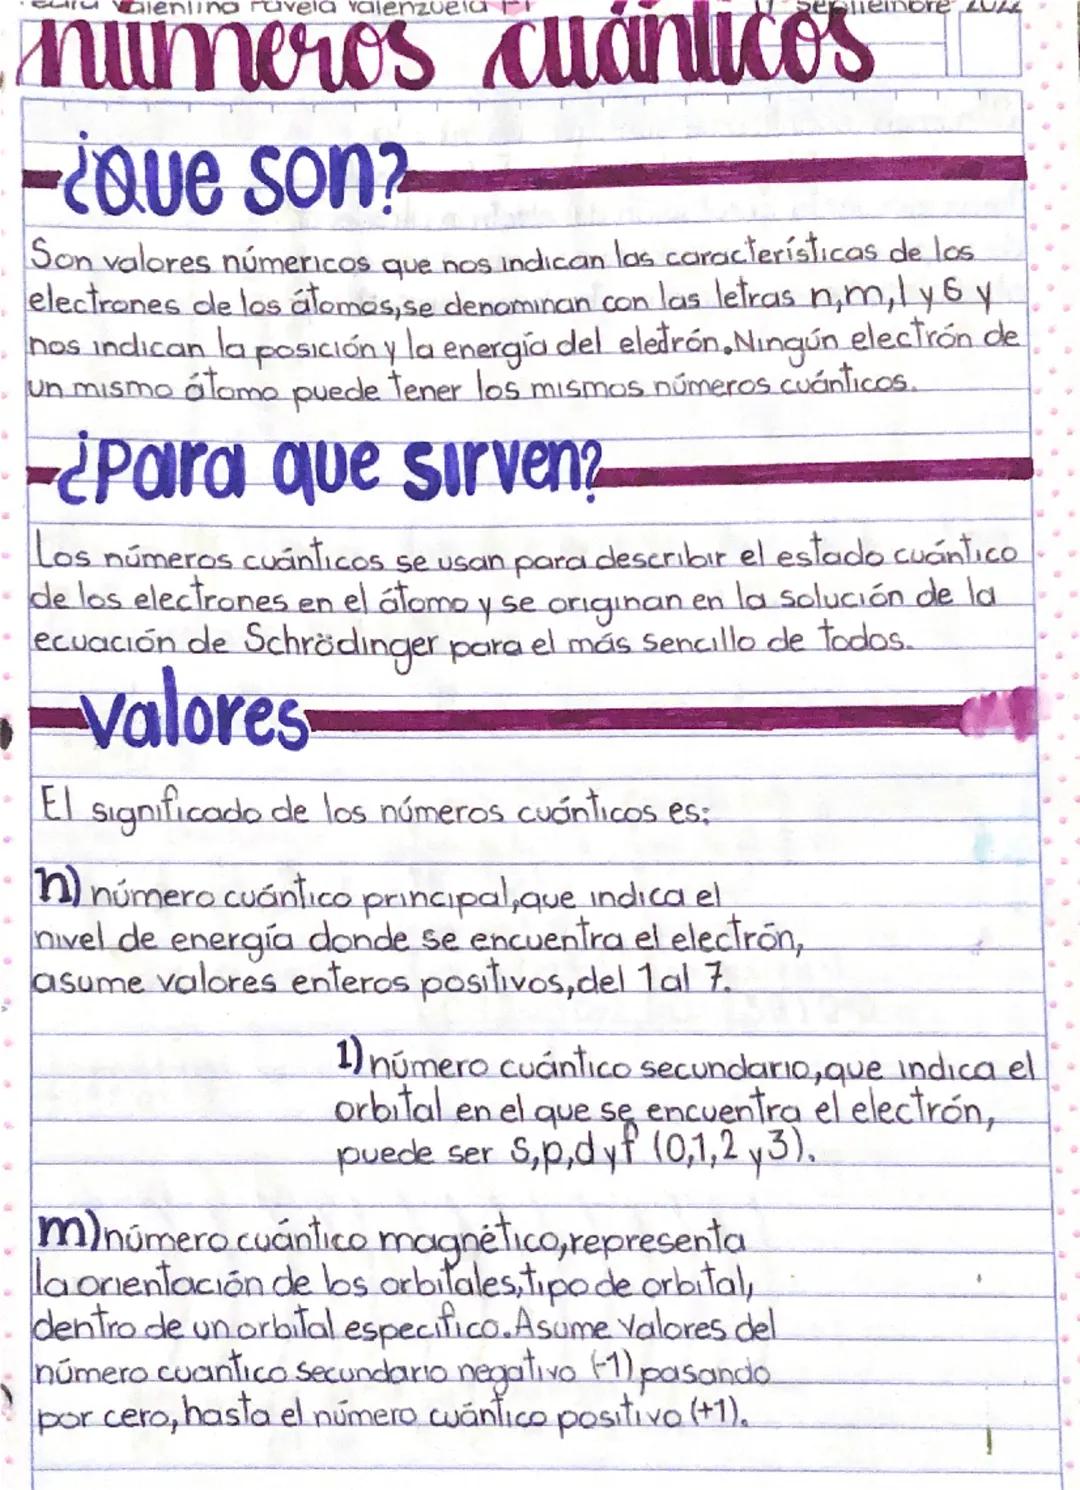 Valentina Favela Valenzuela
Septiembre 2022
números cuánticos
¿Que son?
Son valores númericos que nos indican las características de los
electrones de los átomos, se denominan con las letras n, m, l y S y
nos indican la posición y la energía del eletrón. Ningún electrón de
un mismo átomo puede tener los mismos números cuánticos.
¿Para que sirven?
Los números cuánticos se usan para describir el estado cuántico
de los electrones en el átomo y se originan en la solución de la
ecuación de Schrödinger para el más sencillo de todos.
Valores
El significado de los números cuánticos es:
n) número cuántico principal, que indica el
nivel de energía donde se encuentra el electrón,
asume valores enteros positivos, del 1 al 7.
1) número cuántico secundario, que indica el
orbital en el que se encuentra el electrón,
puede ser S, p, d y f (0,1,2 y 3).
m) número cuántico magnético, representa
la orientación de los orbitales, tipo de orbital,
dentro de un orbital especifico. Asume valores del
número cuantico secundario negativo (-1) pasando
por cero, hasta el número cuántico positivo (+1).